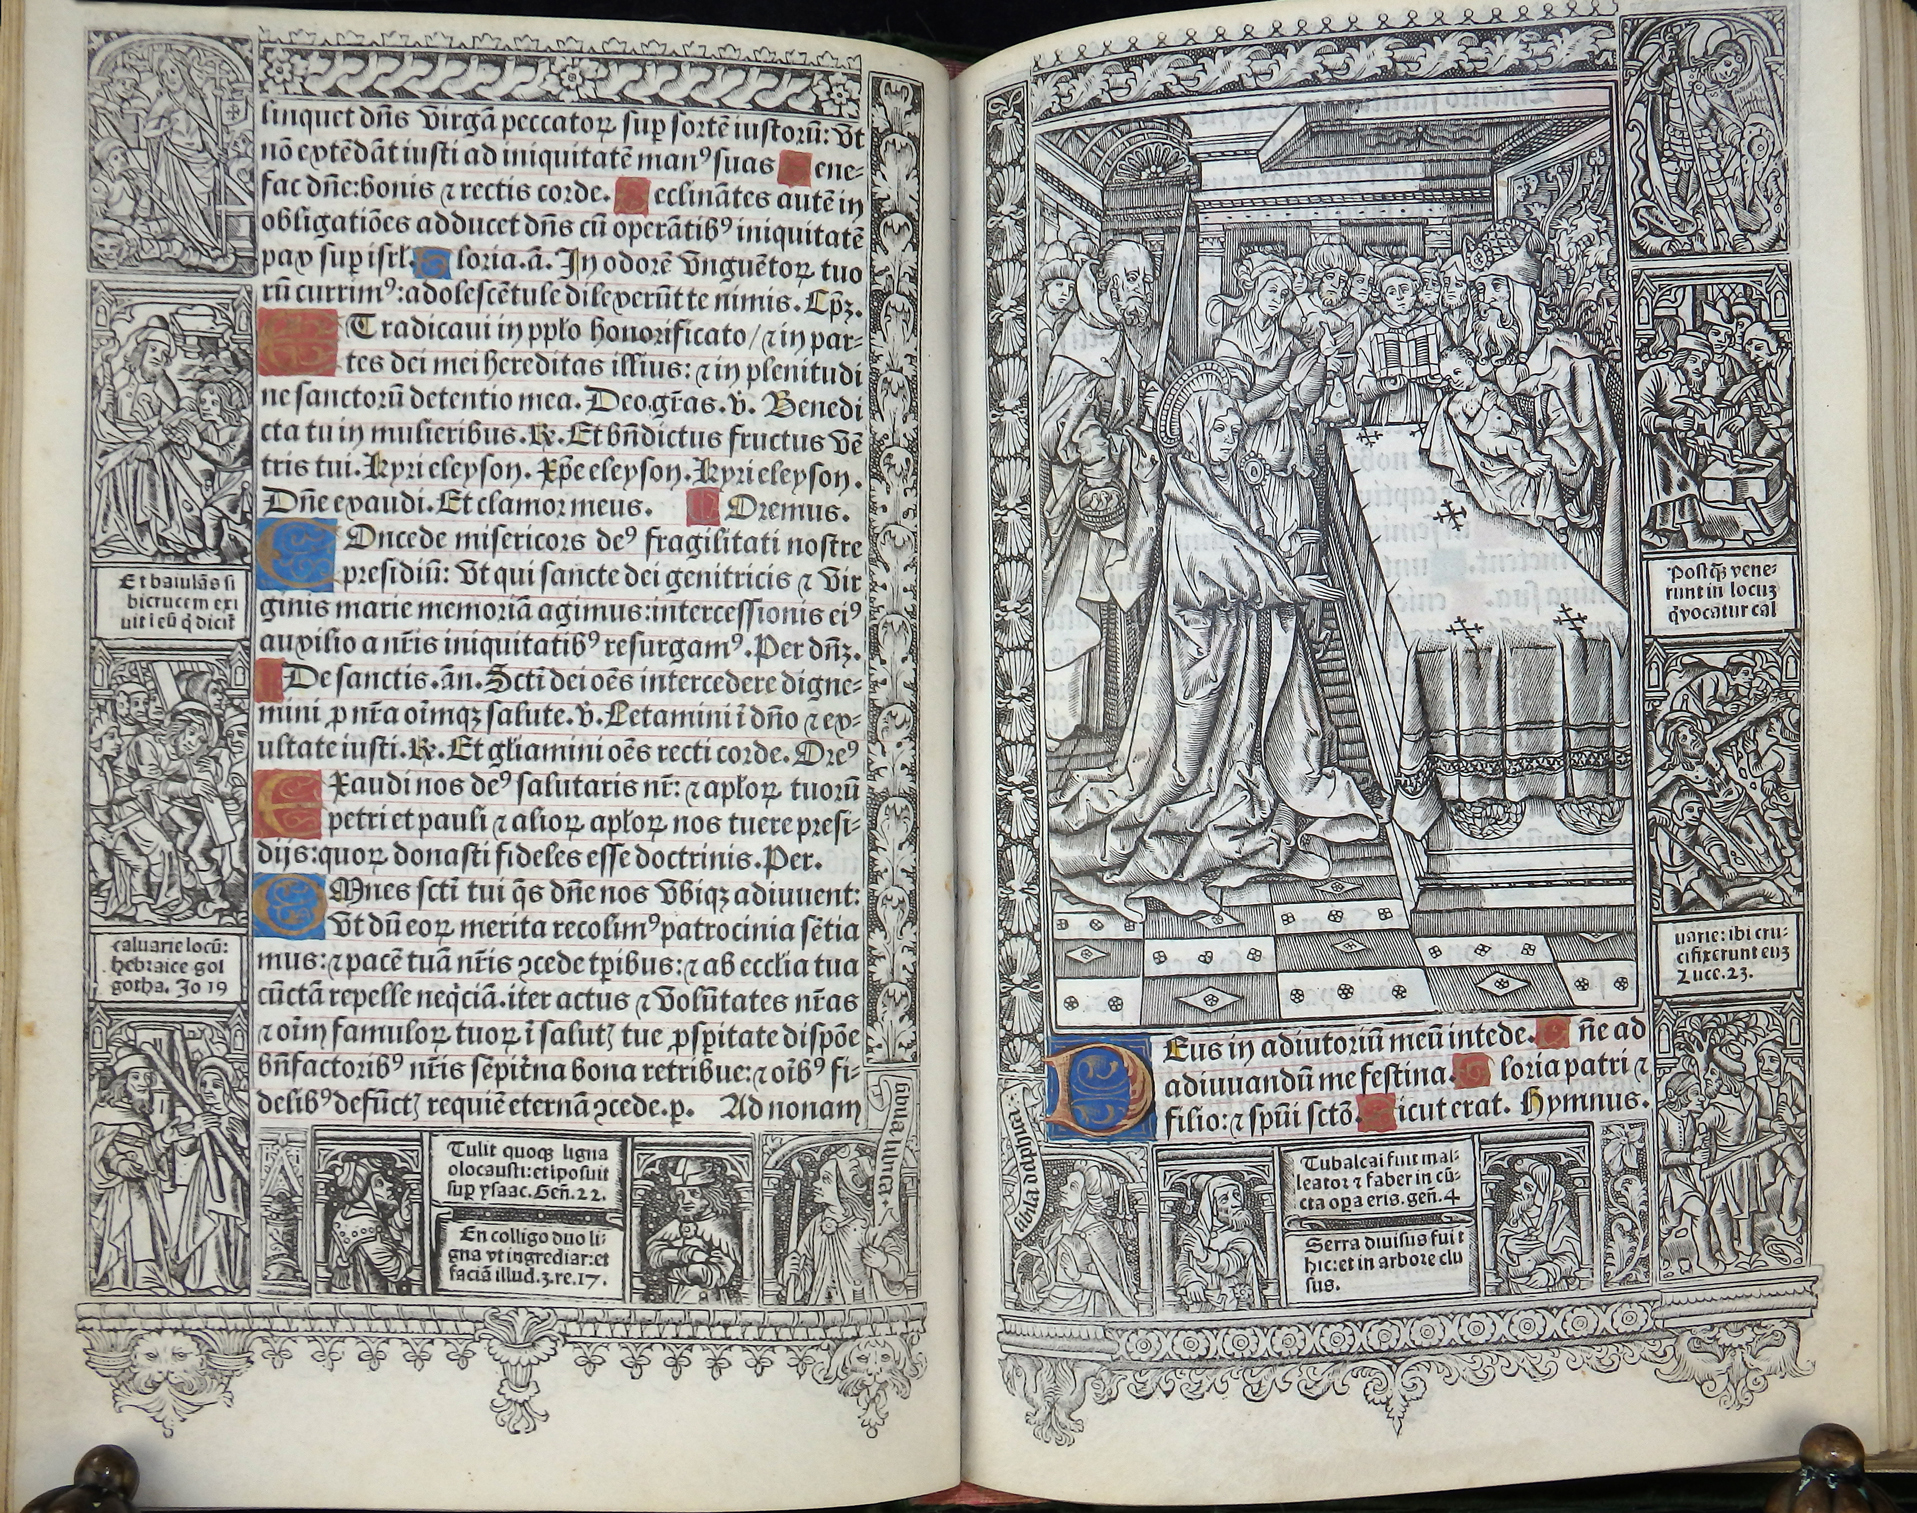 linquet dñs virgã peccatoꝝ sup sortẽ iustorũ: vt
nõ extẽdãt iusti ad iniquitatẽ manꝰ suas Bene-
fac dñe: bonis ⁊ rectis corde. Declinãtes autẽ in
obligatiões adducet dñs cũ operãtibꝰ iniquitatẽ
pax sup isrl. Gloria. ã. In odorẽ vnguẽtoꝝ tuo
rũ currimꝰ: adolescẽtule dilexerũt te nimis. Cp̃ꝫ.
ET radicaui in pplo honorificato / ⁊ in par-
tes dei mei hereditas illius: ⁊ in plenitudi
ne sanctorũ detentio mea. Deo gr̃as. v̾. Benedi
cta tu in mulieribus. ℟. Et bñdictus fructus vẽ
tris tui. Kyrieleyson. Xp̃eeleyson. Kyrieleyson.
Dñe exaudi. Et clamor meus. Oremus.
COncede misericors deꝰ fragilitati nostre
presidiũ: vt qui sancte dei genitricis ⁊ vir
ginis marie memoriã agimus: intercessionis eiꝰ
auxilio a nr̃is iniquitatibꝰ resurgamꝰ. Per dñꝫ.
De sanctis. ãn. Sctĩ dei oẽs intercedere digne-
mini ꝓ nr̃a oĩmqꝫ salute. v̾. Letamini ĩ dño ⁊ ex-
ultate iusti. ℟. Et gl̃iamini oẽs recti corde. Oreꝰ
EXaudi nos deꝰ salutaris nr̃: ⁊ apl̃oꝝ tuorũ
petri et pauli ⁊ alioꝝ apl̃oꝝ nos tuere presi-
dijs: quoꝝ donasti fideles esse doctrinis. Per.
OMnes sctĩ tui q̃s dñe nos vbiqꝫ adiuuent:
vt dũ eoꝝ merita recolimꝰ patrocinia sẽtia
mus: ⁊ pacẽ tuã nr̃is ꝯcede tp̃ibus: ⁊ ab eccl̃ia tua
cũctã repelle neq̃ciã. iter actus ⁊ volũtates nr̃as
⁊ oĩm famuloꝝ tuoꝝ ĩ salutꝫ tue ꝓspitate dispõe
bñfactoribꝰ nr̃is sẽpit̃na bona retribue: ⁊ oĩbꝰ fi-
delibꝰ defũctꝫ requiẽ eternã ꝯcede. p. Ad nonam
Et baiulãs si
bi crucem exi
uit ĩ eũ q̃ dicit̃
caluarie locũ:
hebraice gol
gotha. Jo 19
Tulit quoqꝫ ligna
olocausti: et iposuit
sup ysaac. Geñ. 22.
En colligo duo li-
gna vt ingrediar: et
faciã illud. 3. re. 17.
DEus in adiutoriũ meũ intẽde. Dñe ad
adiuuandũ me festina. Gloria patri ⁊
filio: ⁊ spũi sctõ. Sicut erat. Hymnus.
Postqꝫ vene-
runt in locuꝫ
q̃ vocatur cal
uarie: ibi cru-
cifixerunt euꝫ
Luce. 23.
sibila delphica
Tubalcai fuit mal-
leator ⁊ faber in cũ-
cta opa eris. geñ. 4
Serra diuisus fuit
hic: et in arbore clu
sus.